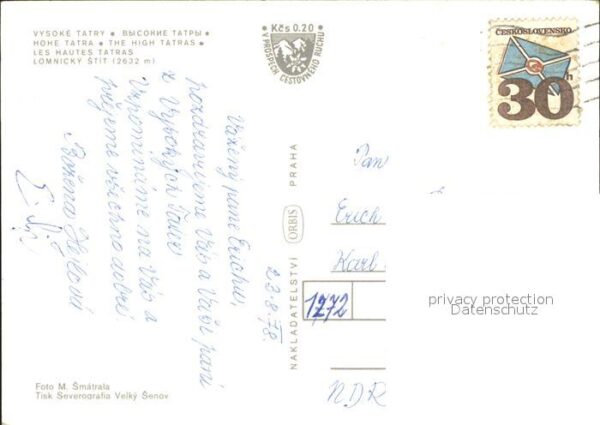 VYSOKÉ TATRY • ВЫСОКИЕ ТАТРЫ •
HOHE TATRA • THE HIGH TATRAS •
LES HAUTES TATRAS
LOMNICKÝ ŠTÍT (2632 m)
Kčs 0.20
V PROSPĚCH CESTOVNÉHO RUCHU
ČESKOSLOVENSKO
30 h
22.8.78.
Vážený pane Erichu,
pozdravujeme Vás a Vaši paní
z Vysokých Tater.
Vzpomínáme na Vás a
přejeme všechno dobré.
Božena
NAKLADATELSTVÍ ORBIS PRAHA
Pan
Erich
Karl
1272
NDR
privacy protection
Datenschutz
Foto M. Šmátrala
Tisk Severografia Velký Šenov